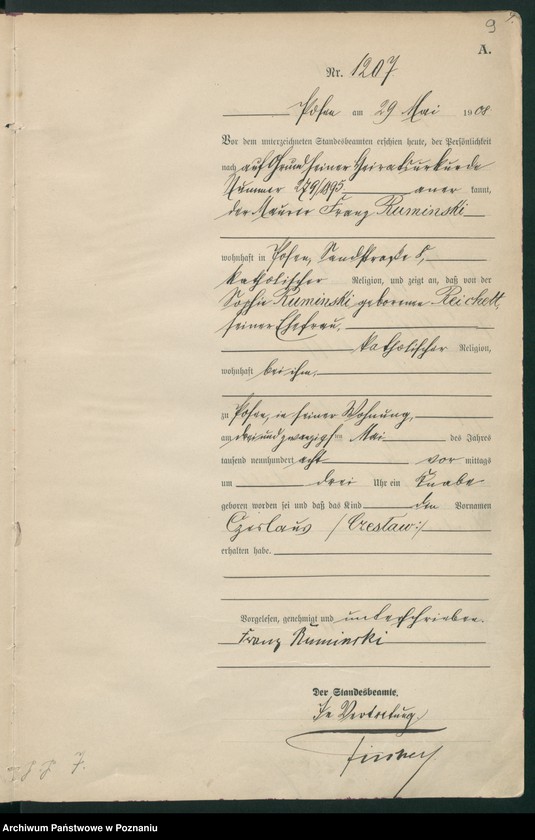 9
A.
Nr. 1207
Posen am 29 Mai 1908
Vor dem unterzeichneten Standesbeamten erschien heute, der Persönlichkeit
nach auf Grund seiner Heiratsurkunde
Nummer 279/1895 aner kannt,
der Maurer Franz Ruminski
wohnhaft in Posen, Sandstraße 8,
katholischer Religion, und zeigte an, daß von der
Sophie Ruminski geborenen Reichelt,
seiner Ehefrau,
katholischer Religion,
wohnhaft bei ihm,
zu Posen, in seiner Wohnung,
am dreiundzwanzigsten Mai des Jahres
tausend neunhundert acht vor mittags
um drei Uhr ein Knabe
geboren worden sei und daß das Kind den Vornamen
Czeslaus /:Czesław:/
erhalten habe.
Vorgelesen, genehmigt und unterschrieben.
Franz Ruminski
Der Standesbeamte.
In Vertretung
Archiwum Państwowe w Poznaniu